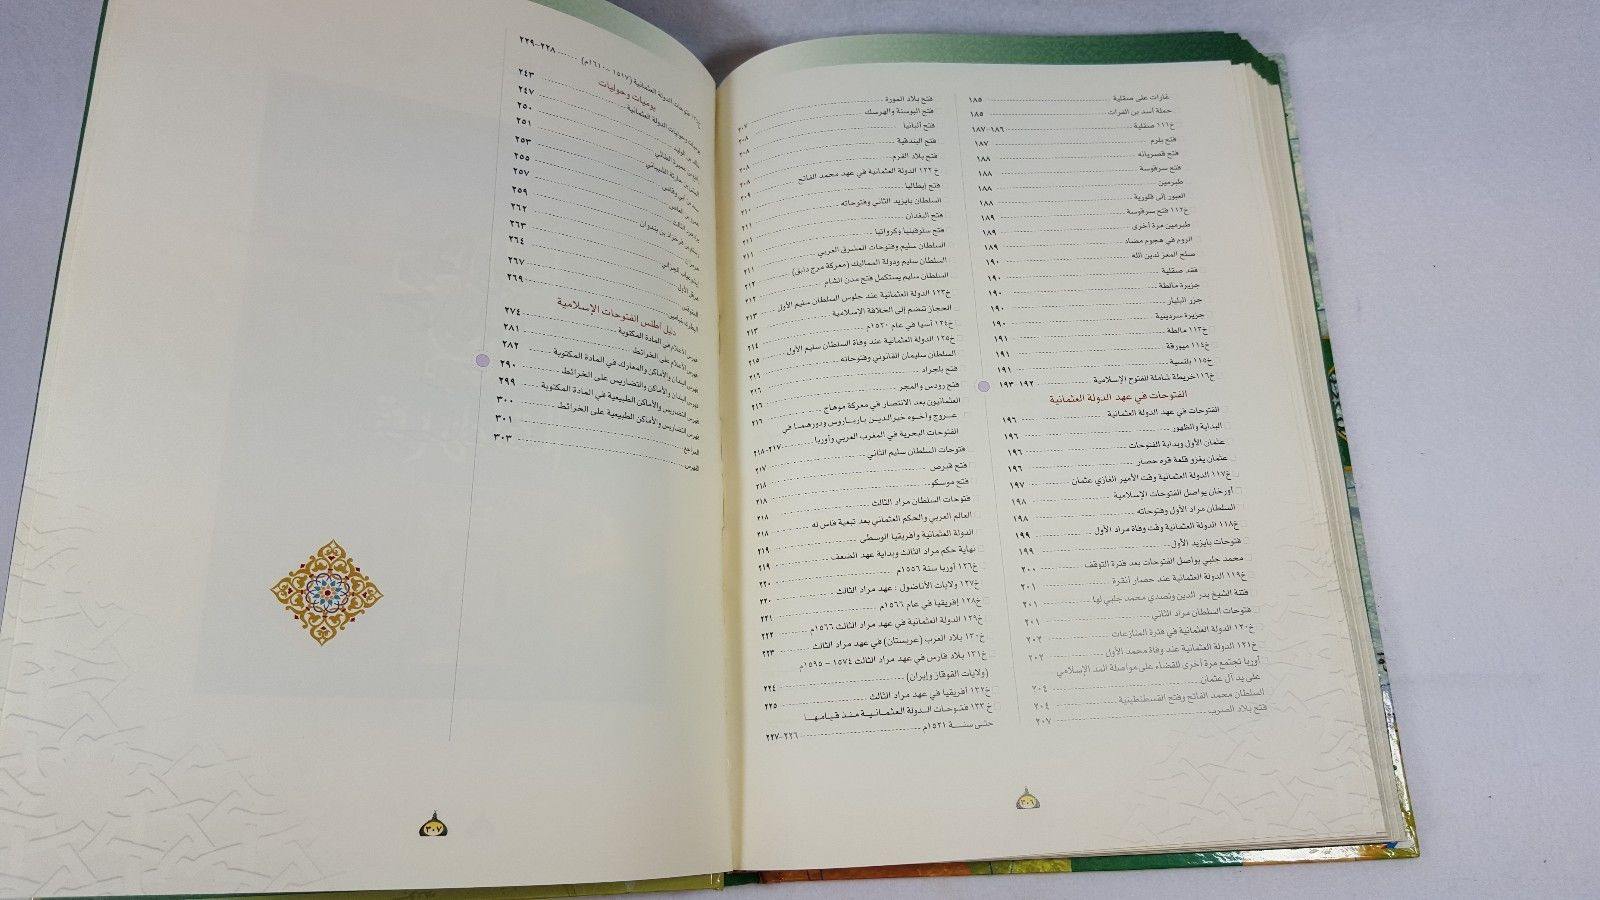 غارات على صقلية ١٨٥
حملة أسد بن الفرات ١٨٥
خ١١١ صقلية ١٨٦-١٨٧
فتح بلرم ١٨٧
فتح قصريانه ١٨٨
فتح سرقوسة ١٨٨
طبرمين ١٨٨
العبور إلى قلورية ١٨٨
خ١١٢ فتح سرقوسة ١٨٩
طبرمين مرة أخرى ١٨٩
الروم في هجوم مضاد ١٨٩
صلح المعز لدين الله ١٩٠
فقد صقلية ١٩٠
جزيرة مالطة ١٩٠
جزر البليار ١٩٠
جزيرة سردينية ١٩٠
خ١١٣ مالطة ١٩١
خ١١٤ ميورقة ١٩١
خ١١٥ بلنسية ١٩١
خ١١٦ خريطة شاملة للفتوح الإسلامية ١٩٢ ١٩٣
الفتوحات في عهد الدولة العثمانية
الفتوحات في عهد الدولة العثمانية ١٩٦
البداية والظهور ١٩٦
عثمان الأول وبداية الفتوحات ١٩٦
عثمان يغزو قلعة قره حصار ١٩٦
خ١١٧ الدولة العثمانية وقت الأمير الغازي عثمان ١٩٧
أورخان يواصل الفتوحات الإسلامية ١٩٨
السلطان مراد الأول وفتوحاته ١٩٨
خ١١٨ الدولة العثمانية وقت وفاة مراد الأول ١٩٩
فتوحات بايزيد الأول ١٩٩
محمد جلبي يواصل الفتوحات بعد فترة التوقف ٢٠٠
خ١١٩ الدولة العثمانية عند حصار أنقرة ٢٠١
فتنة الشيخ بدر الدين وتصدي محمد جلبي لها ٢٠١
فتوحات السلطان مراد الثاني ٢٠١
خ١٢٠ الدولة العثمانية في فترة المنازعات ٢٠٢
خ١٢١ الدولة العثمانية عند وفاة محمد الأول ٢٠٢
أوربا تجتمع مرة أخرى للقضاء على مواصلة المد الإسلامي
على يد آل عثمان ٢٠٤
السلطان محمد الفاتح وفتح القسطنطينية ٢٠٤
فتح بلاد الصرب ٢٠٧
فتح بلاد المورة ٢٠٧
فتح البوسنة والهرسك
فتح ألبانيا ٢٠٨
فتح البندقية ٢٠٨
فتح بلاد القرم ٢٠٨
خ ١٢٢ الدولة العثمانية في عهد محمد الفاتح ٢٠٩
فتح إيطاليا
السلطان بايزيد الثاني وفتوحاته ٢١٠
فتح البغدان ٢١١
فتح سلوفينيا وكرواتيا ٢١١
السلطان سليم وفتوحات المشرق العربي ٢١١
السلطان سليم ودولة المماليك (معركة مرج دابق) ٢١١
السلطان سليم يستكمل فتح مدن الشام ٢١٢
خ١٢٣ الدولة العثمانية عند جلوس السلطان سليم الأول ٢١٣
الحجاز تنضم إلى الخلافة الإسلامية ٢١٣
خ١٢٤ آسيا في عام ١٥٢٠م ٢١٤
خ١٢٥ الدولة العثمانية عند وفاة السلطان سليم الأول ٢١٥
السلطان سليمان القانوني وفتوحاته ٢١٦
فتح بلجراد ٢١٦
فتح رودس والمجر
العثمانيون بعد الانتصار في معركة موهاج ٢١٦
عروج وأخوه خير الدين بارباروس ودورهما في
الفتوحات البحرية في المغرب العربي وأوربا ٢١٧-٢١٨
فتوحات السلطان سليم الثاني ٢١٧
فتح قبرص ٢١٨
فتح موسكو ٢١٨
فتوحات السلطان مراد الثالث ٢١٨
العالم العربي والحكم العثماني بعد تبعية فاس له ٢١٨
الدولة العثمانية وأفريقيا الوسطى ٢١٩
نهاية حكم مراد الثالث وبداية عهد الضعف ٢١٩
خ١٢٦ أوربا سنة ١٥٥٦م ٢٢٠
خ١٢٧ ولايات الأناضول : عهد مراد الثالث ٢٢٠
خ١٢٨ إفريقيا في عام ١٥٦٦م ٢٢١
خ١٢٩ الدولة العثمانية في عهد مراد الثالث ١٥٦٦م ٢٢٢
خ١٣٠ بلاد العرب (عربستان) في عهد مراد الثالث ٢٢٣
خ١٣١ بلاد فارس في عهد مراد الثالث ١٥٧٤ - ١٥٩٥م
(ولايات القوقاز وإيران) ٢٢٤
خ١٣٢ أفريقيا في عهد مراد الثالث ٢٢٥
خ ١٣٣ فتوحات الدولة العثمانية منذ قيامها
حتى سنة ١٥٢١م ٢٢٦-٢٢٧
٣٠٦
فتوحات الدولة العثمانية (١٥١٧ - ١٦١٠م) ٢٢٨-٢٢٩
يوميات وحوليات
يوميات وحوليات الدولة العثمانية ٢٤٣
٢٤٧
٢٥٠
٢٥١
٢٥٣
٢٥٥
٢٥٧
٢٥٩
٢٦٢
٢٦٣
٢٦٤
٢٦٧
٢٦٩
دليل أطلس الفتوحات الإسلامية
فهرس الأعلام في المادة المكتوبة ٢٧٤
فهرس الأعلام على الخرائط ٢٨١
فهرس البلدان والأماكن والمعارك في المادة المكتوبة ٢٨٢
فهرس البلدان والأماكن والتضاريس على الخرائط ٢٩٠
فهرس التضاريس والأماكن الطبيعية في المادة المكتوبة ٢٩٩
فهرس التضاريس والأماكن الطبيعية على الخرائط ٣٠٠
المراجع ٣٠١
الفهرس ٣٠٣
٣٠٧